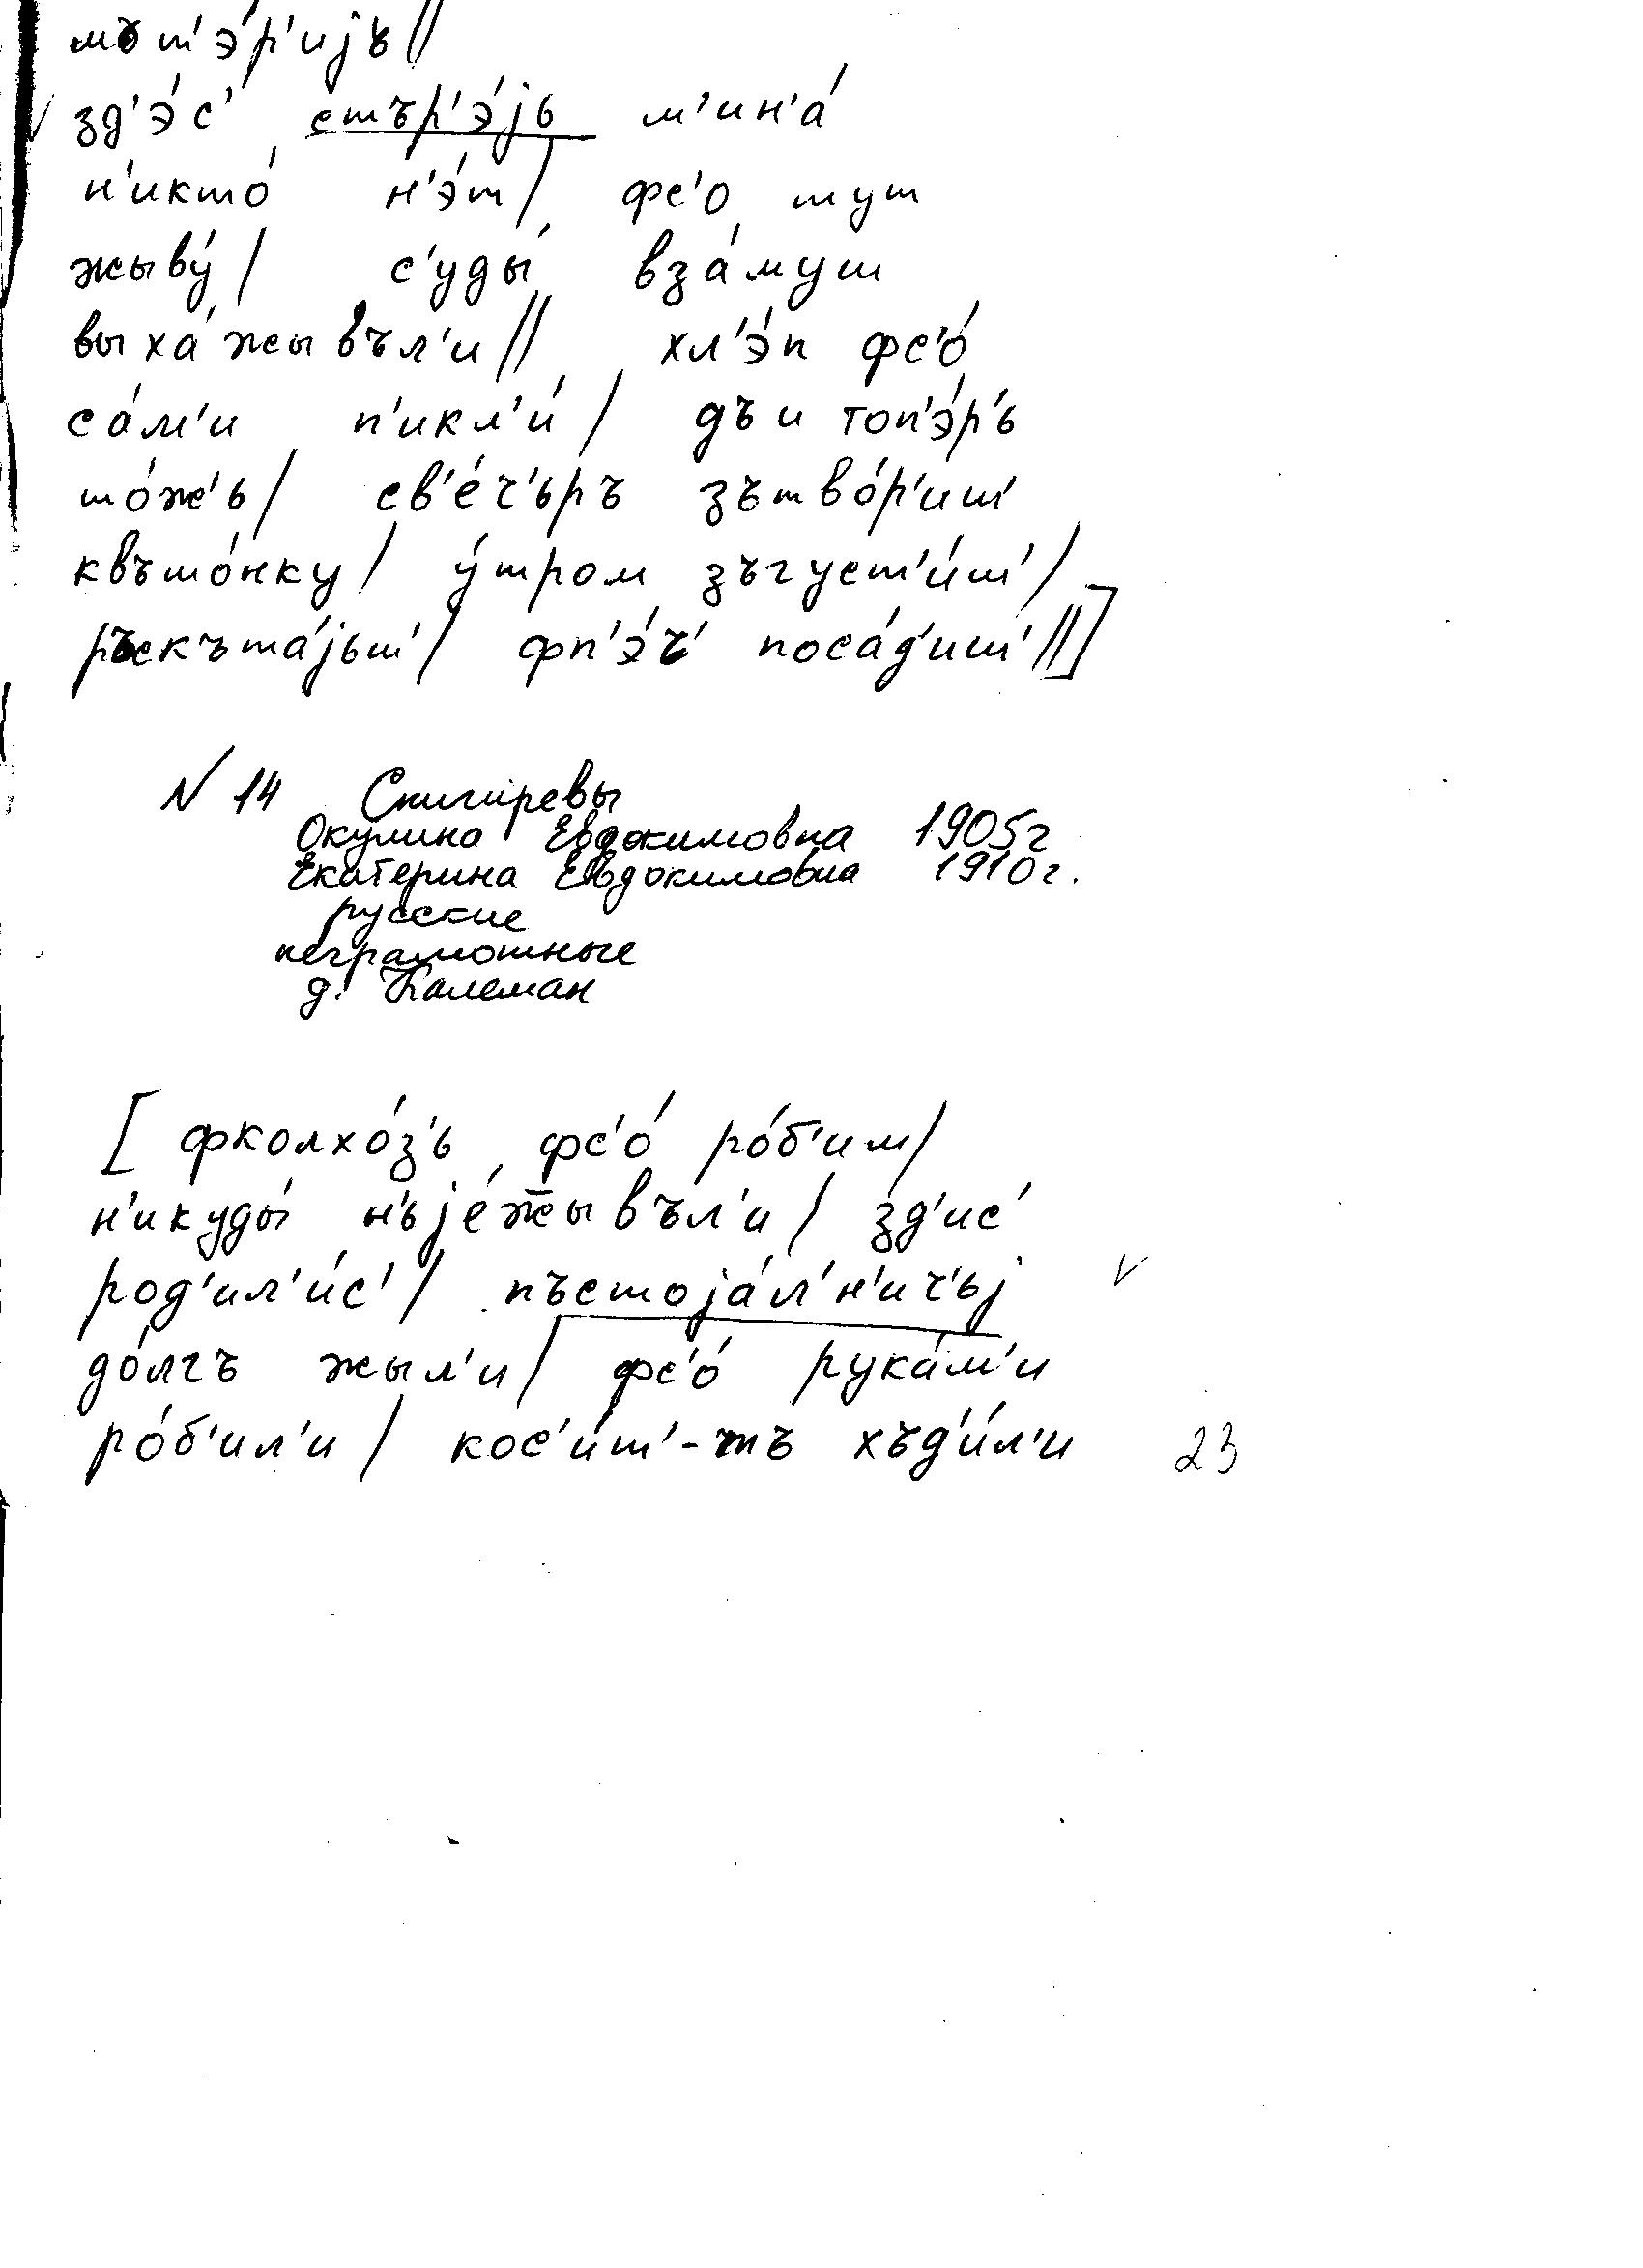 мът'э́р'иjъ//
зд'э́с' стър'э́jь м'ин'а́
н'икто́ н'э́т/ фс'о тут
жыву́/ с'уды́ вза́муш
выха́жывъл'и// хл'э́п фс'о́
са́м'и п'икл'и́/ дъ и топ'э́р'ь
то́ж'ь/ св'е́ч'ьръ зътво́р'иш'
квъшо́нку/ у́тром зъгуст'и́ш'/
ръскъта́jьш'/ фп'э́ч' поса́д'иш'//]
N 14 Снигиревы
Окулина Евдокимовна 1905г
Екатерина Евдокимовна 1910г.
русские
неграмотные
д. Калеман
[ фколхо́з'ь фс'о́ ро́б'им/
н'икуды́ н'ьjе́ж̅ывъл'и/ зд'ис'
род'ил'и́с'/ пъстоjа́л'н'ич'ьj
до́лгъ жыл'и/ фс'о́ рука́м'и
ро́б'ил'и/ кос'и́т'-тъ хъд'и́л'и 23